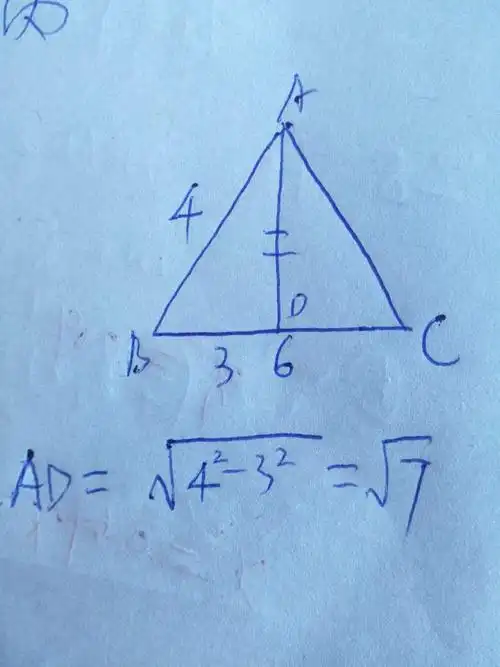 A
4
D
B 3 6 C
AD = √(4²-3²) = √7